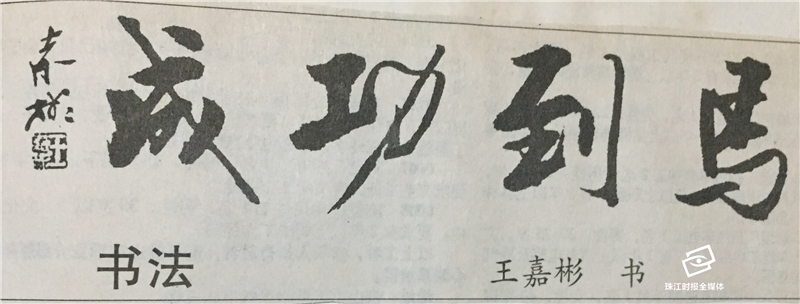 馬到功成
嘉彬
书法
王嘉彬 书
珠江时报全媒体